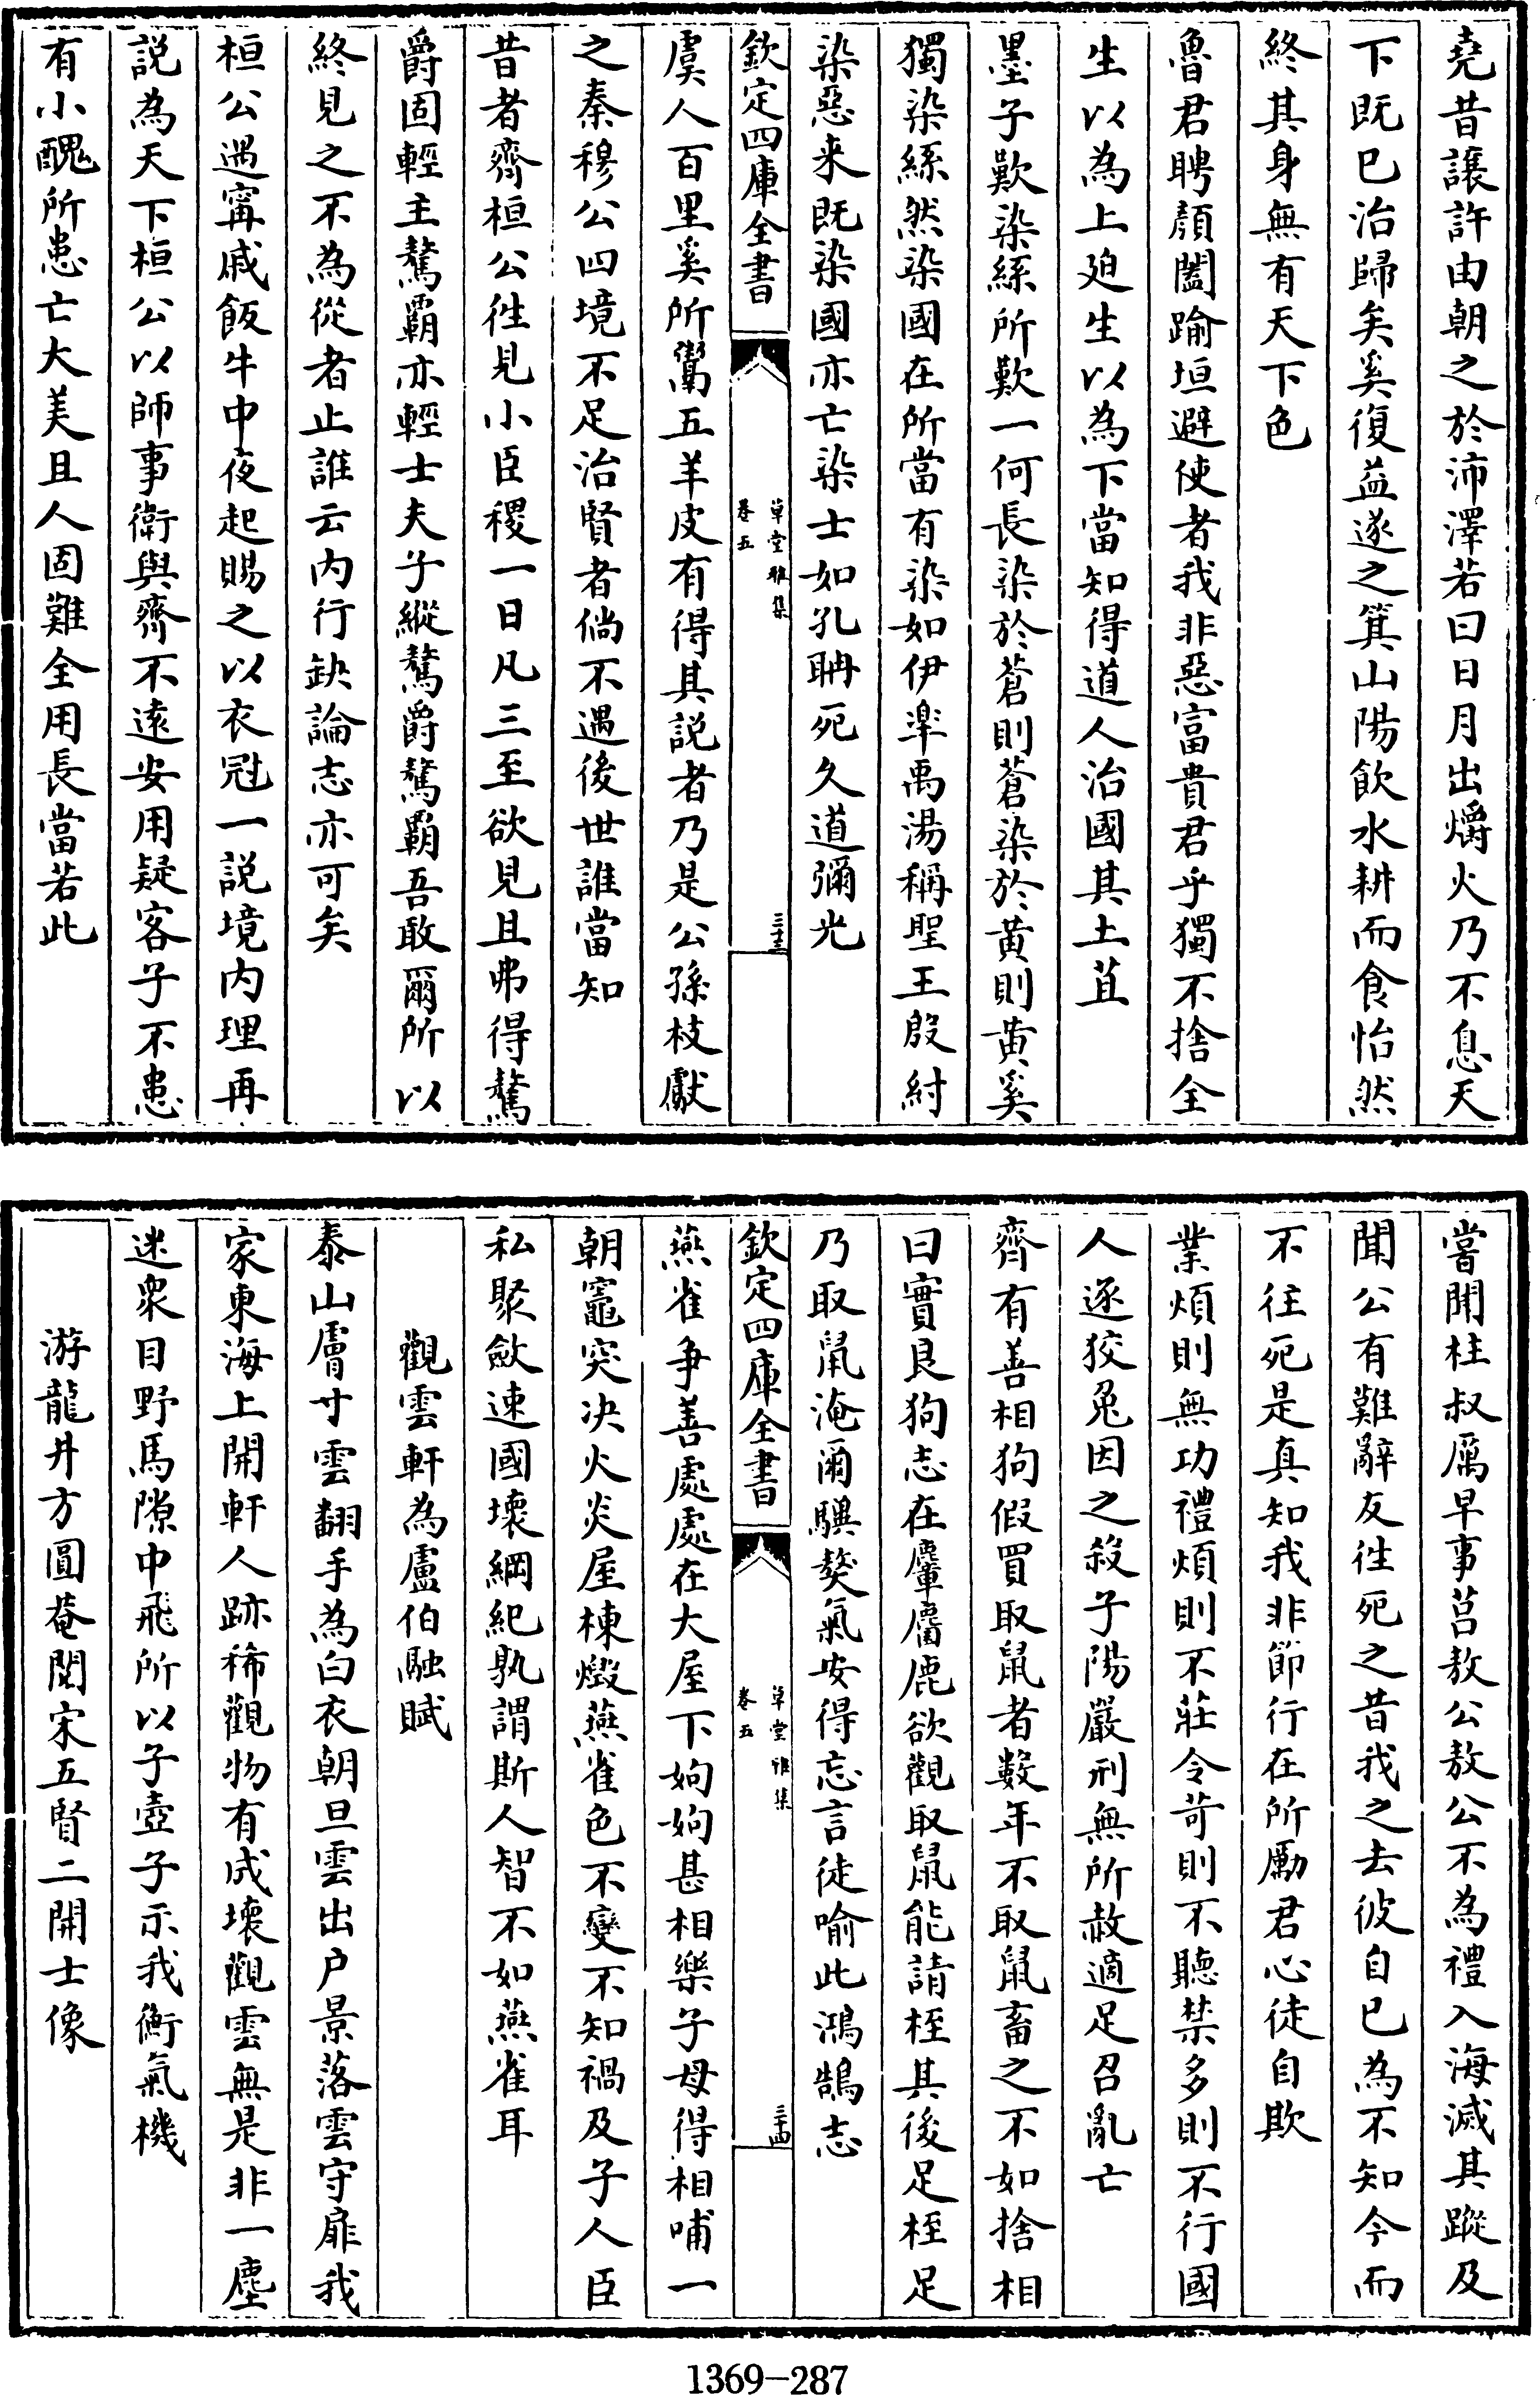 堯昔讓許由朝之於沛澤若曰日月出爝火乃不息天
下既已治歸矣奚復益遂之箕山陽飲水耕而食怡然
終其身無有天下色
魯君聘顏闔踰垣避使者我非惡富貴君乎獨不捨全
生以為上廹生以為下當知得道人治國其土苴
墨子歎染絲所歎一何長染於蒼則蒼染於黃則黃奚
獨染絲然染國在所當有染如伊臯禹湯稱聖王殷紂
染惡来既染國亦亡染士如孔聃死久道彌光
欽定四庫全書
草堂雅集
卷五
三十三
虞人百里奚所鬻五羊皮有得其説者乃是公孫枝獻
之秦穆公四境不足治賢者倘不遇後世誰當知
昔者齊桓公徃見小臣稷一日凡三至欲見且弗得驁
爵固輕主驁霸亦輕士夫子縱驁爵驁霸吾敢爾所以
終見之不為從者止誰云内行缺論志亦可矣
桓公遇甯戚飯牛中夜起賜之以衣冠一説境内理再
説為天下桓公以師事衛與齊不遠安用疑客子不患
有小醜所患亡大美且人固難全用長當若此
嘗聞柱叔厲早事莒敖公敖公不為禮入海滅其蹤及
聞公有難辭友徃死之昔我之去彼自已為不知今而
不往死是真知我非節行在所勵君心徒自欺
業煩則無功禮煩則不莊令苛則不聽禁多則不行國
人逐狡兔因之殺子陽嚴刑無所赦適足召亂亡
齊有善相狗假買取鼠者數年不取鼠畜之不如捨相
曰實良狗志在麞麕鹿欲觀取鼠能請桎其後足桎足
乃取鼠淹爾驥獒氣安得忘言徒喻此鴻鵠志
欽定四庫全書
草堂雅集
卷五
三十四
燕雀爭善處處在大屋下姁姁甚相樂子母得相哺一
朝竈突决火炎屋棟燬燕雀色不變不知禍及子人臣
私聚斂速國壞綱紀孰謂斯人智不如燕雀耳
觀雲軒為盧伯融賦
泰山膚寸雲翻手為白衣朝旦雲出户景落雲守扉我
家東海上開軒人跡稀觀物有成壞觀雲無是非一塵
迷衆目野馬隙中飛所以子壺子示我衡氣機
游龍井方圓菴閲宋五賢二開士像
1369-287